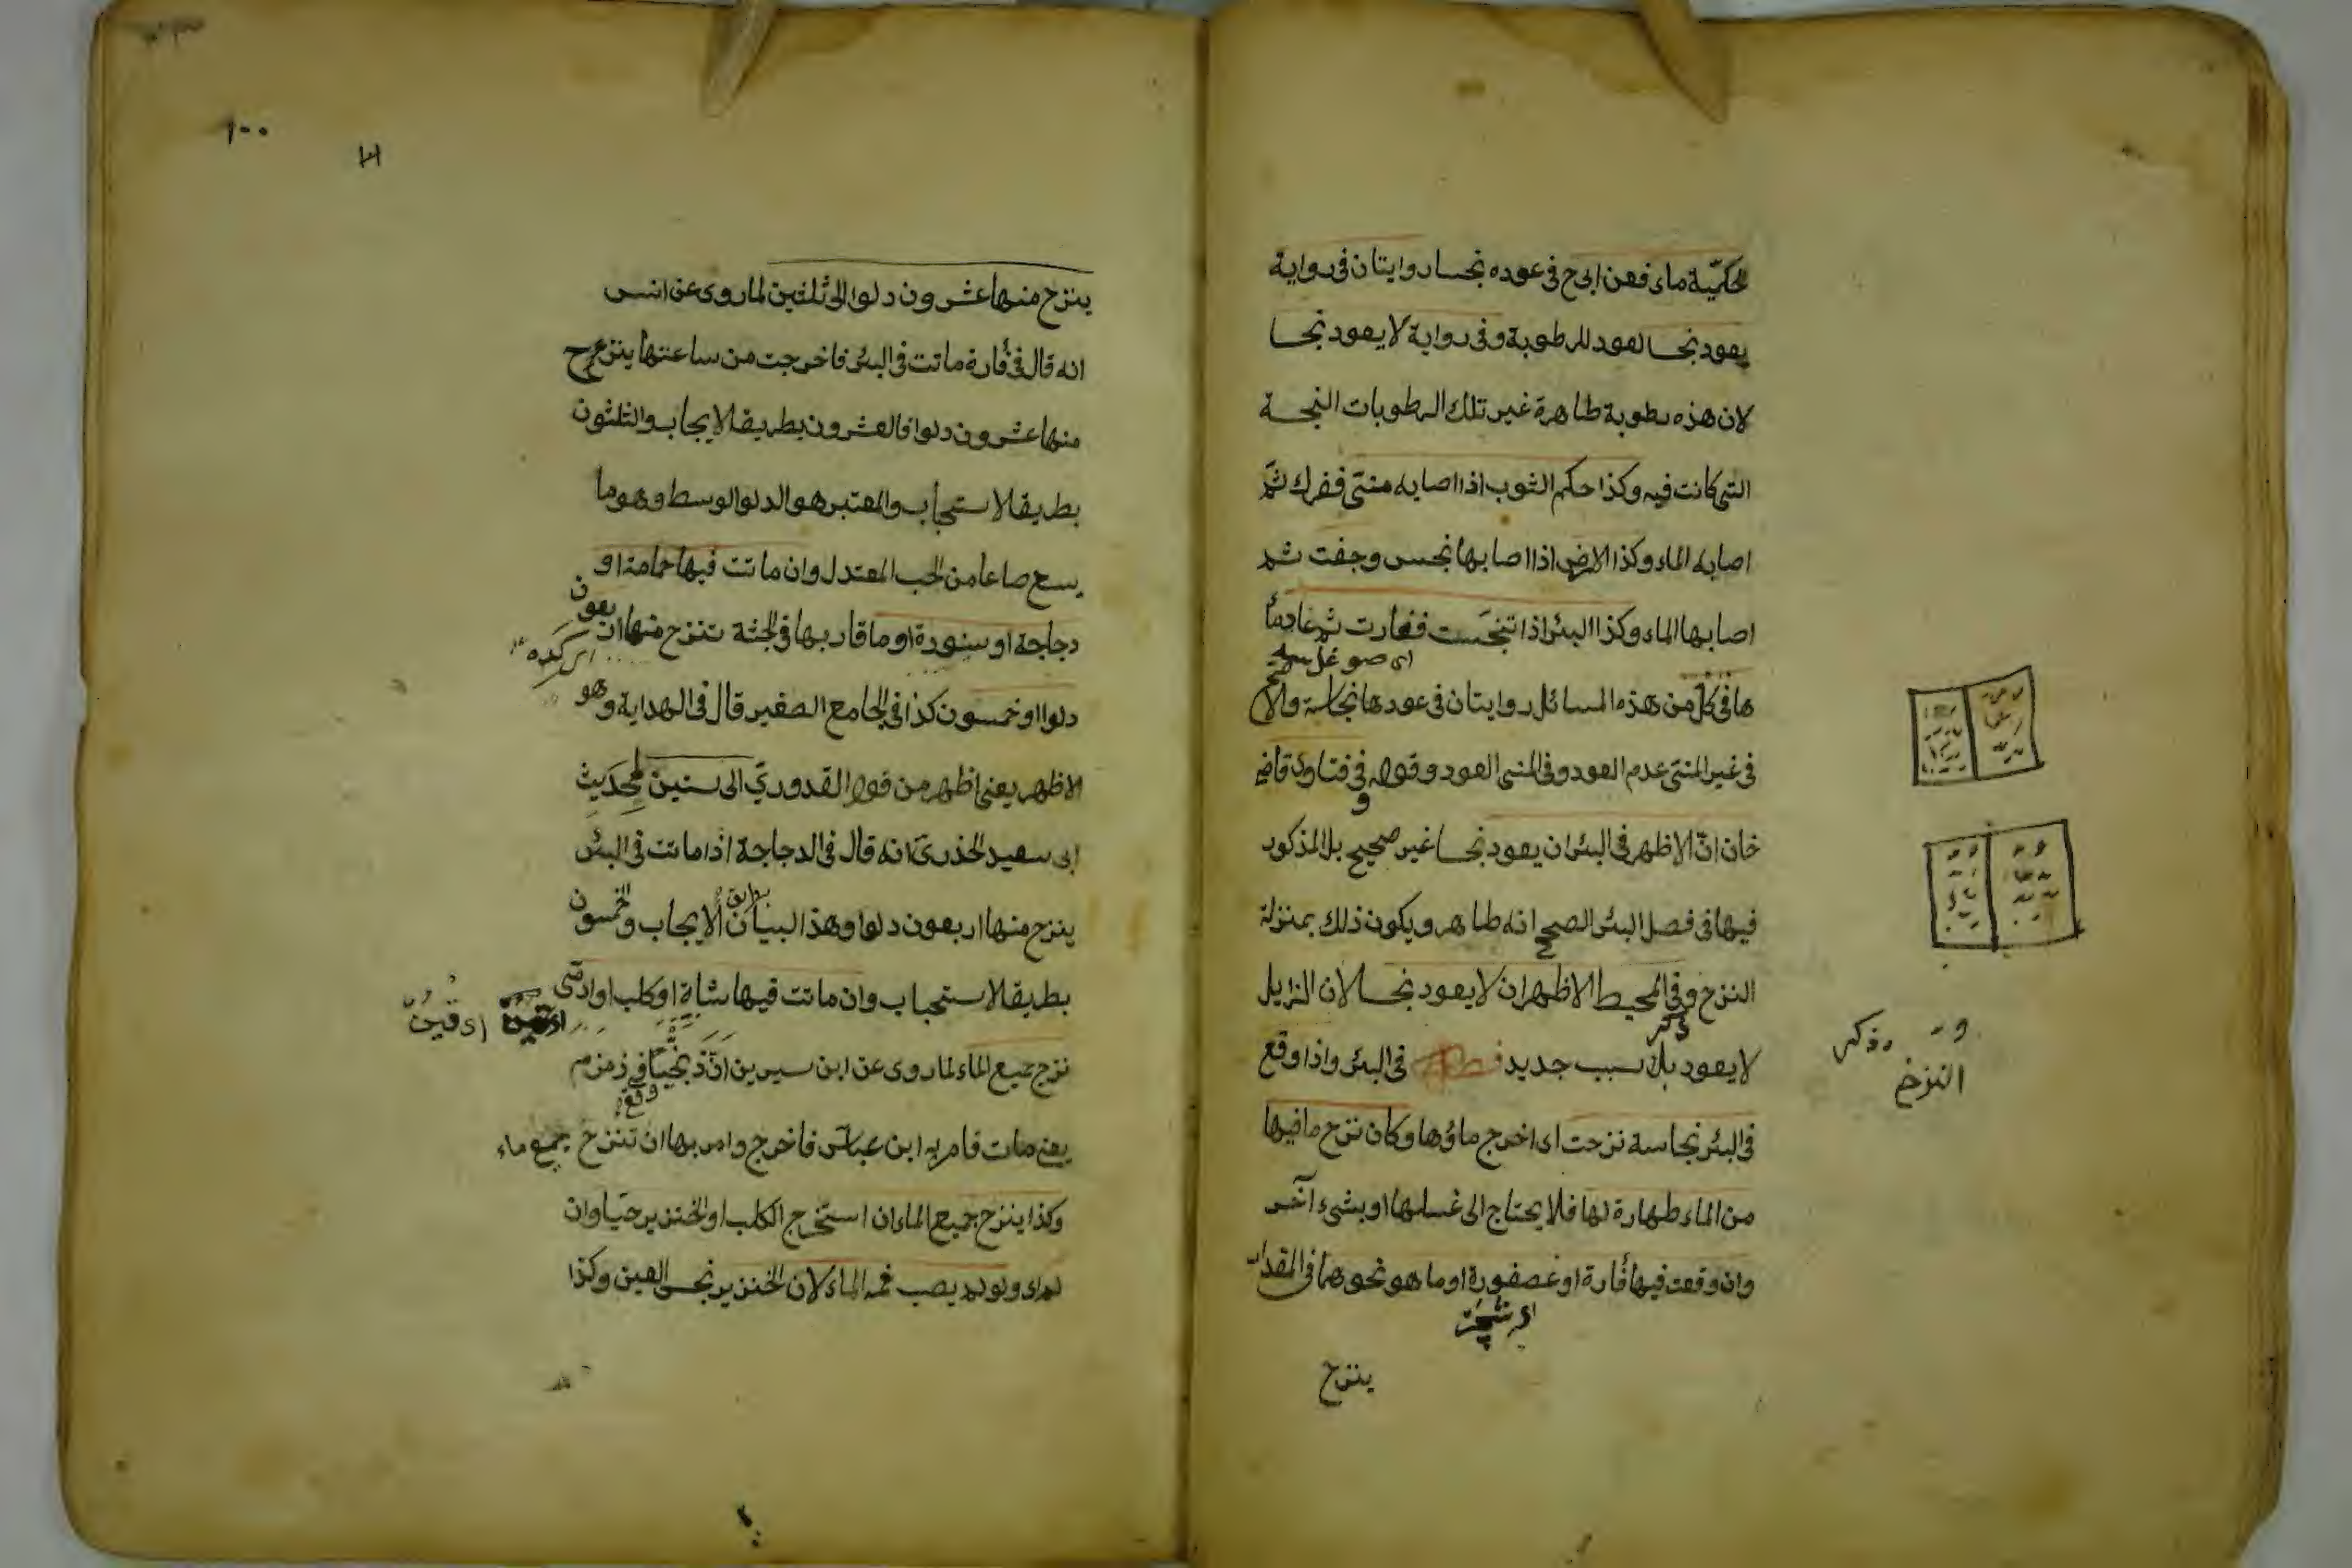 الحكميّة ماء فعن ابى ح فى عوده نجسا روايتان فى رواية
يعود نجسا لعود الرطوبة وفى رواية لا يعود نجسا
لان هذه رطوبة طاهرة غير تلك الرطوبات النجسة
التى كانت فيه وكذا حكم الثوب اذا اصابه منىّ ففرك ثمّ
اصابه الماء وكذا الارض اذا اصابها نجس وجفت ثم
اصابها الماء وكذا البئر اذا تنجّست فغارت ثم عاد ماؤ
اى صو
ها فى كلّ من هذه المسائل روايتان فى عودها نجاسة والاصح
فى غير المنىّ عدم العود وفى المنى العود وقوله فى فتاوى قاضى
خان انّ الاظهر فى البئر ان يعود نجسا غير صحيح بل المذكور
فيها فى فصل البئر الصحيح انه طاهر ويكون ذلك بمنزلة
النزح وفى المحيط الاظهر ان لا يعود نجسا لان الزايل
ذكر
لا يعود بلا سبب جديد فى البئر واذا وقع
النزح
فى البئر نجاسة نزحت اى اخرج ماؤها وكان نزح ما فيها
من الماء طهارة لها فلا يحتاج الى غسلها او بشىء آخر
وان وقعت فيها فأرة او عصفورة او ما هو نحوهما فى المقدار
ينزح
١٠٠
ينزح منها عشرون دلوا الى ثلثين لما روى عن انس
انه قال فى فأرة ماتت فى البئر فاخرجت من ساعتها ينزح
منها عشرون دلوا فالعشرون بطريق الايجاب والثلثون
بطريق الاستحباب والمعتبر هو الدلو الوسط وهو ما
يسع صاعا من الحب المعتدل وان ماتت فيها حمامة او
دجاجة او سنورة او ما قاربها فى الجثة تنزح منها اربعون
دلوا او خمسون كذا فى الجامع الصغير قال فى الهداية وهو
الاظهر يعنى اظهر من قول القدورىّ الى ستين لحديث
ابى سعيد الخذرىّ انه قال فى الدجاجة اذا ماتت فى البئر
ينزح منها اربعون دلوا وهذا لبيان الايجاب والخمسون
بطريق الاستحباب وان ماتت فيها شاة او كلب او ادمّى
نزح جميع الماء لما روى عن ابن سيرين انّ زنجيّا فى زمزم
وقع
يعنى مات فامر به ابن عباس فاخرج وامر بها ان تنزح جميع ماء
وكذا ينزح جميع الماء ان استخرج الكلب او الخنزير حيّا وان
لم او لو لم يصب فمه الماء لان الخنزير نجس العين وكذا